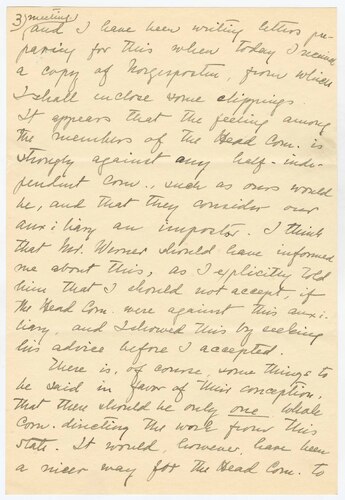 3) meeting
and I have been writing letters pre-
paring for this when today I receive
a copy of Norgesposten, from which
I shall inclose some clippings.
It appears that the feeling among
the members of the Head Com. is
strongly against any half-inde-
pendent Com., such as ours would
be, and that they consider our
auxiliary an impostor. I think
that Mr. Werner should have informed
me about this, as I explicitly told
him that I should not accept, if
the Head Com. were against this auxi-
liary, and I showed this by seeking
his advice before I accepted.
There is, of course, some things to
be said in favor of their conception,
that there should be only one whole
Com. directing the work from this
state. It would, however, have been
a nicer way for the Head Com. to